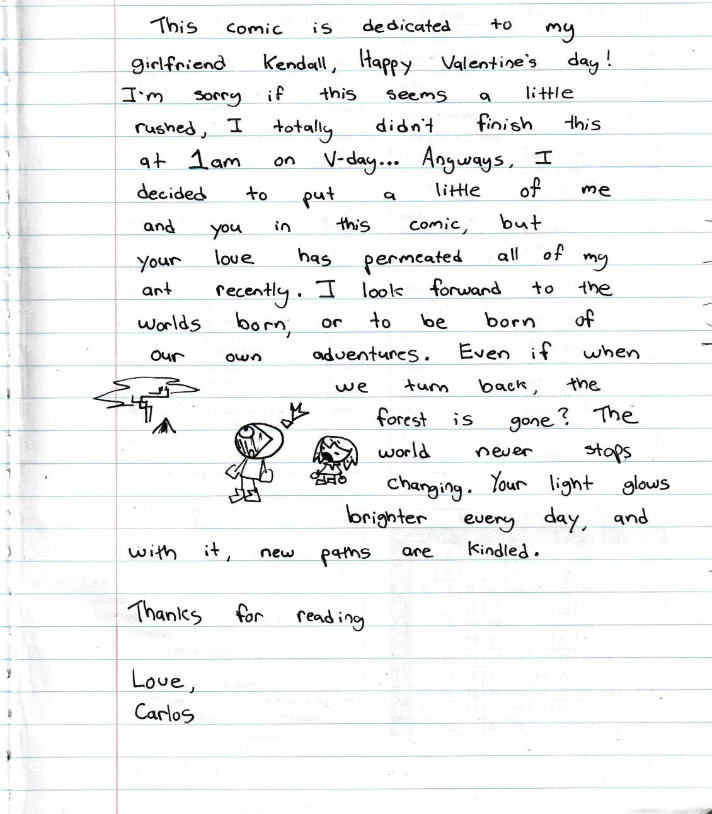 This comic is dedicated to my
girlfriend Kendall, Happy Valentine's day!
I'm sorry if this seems a little
rushed, I totally didn't finish this
at 1am on V-day... Anyways, I
decided to put a little of me
and you in this comic, but
your love has permeated all of my
art recently. I look forward to the
worlds born, or to be born of
our own adventures. Even if when
we turn back, the
forest is gone? The
world never stops
changing. Your light glows
brighter every day, and
with it, new paths are kindled.
Thanks for reading
Love,
Carlos